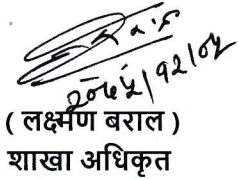 २०७५/१२/०५
( लक्ष्मण बराल )
शाखा अधिकृत